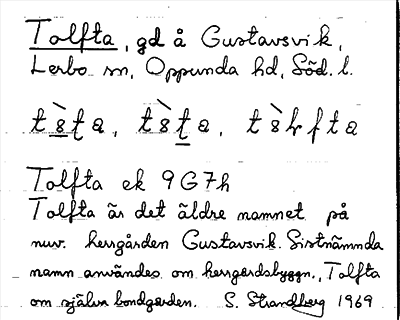 Tolfta, gd å Gustavsvik,
Lerbo sn, Oppunda hd, Söd. l.
Tolfta ek 9G7h
Tolfta är det äldre namnet på
nuv. herrgården Gustavsvik. Sistnämnda
namn användes om herrgårdsbyggn., Tolfta
om själva bondgården. S. Strandberg 1969